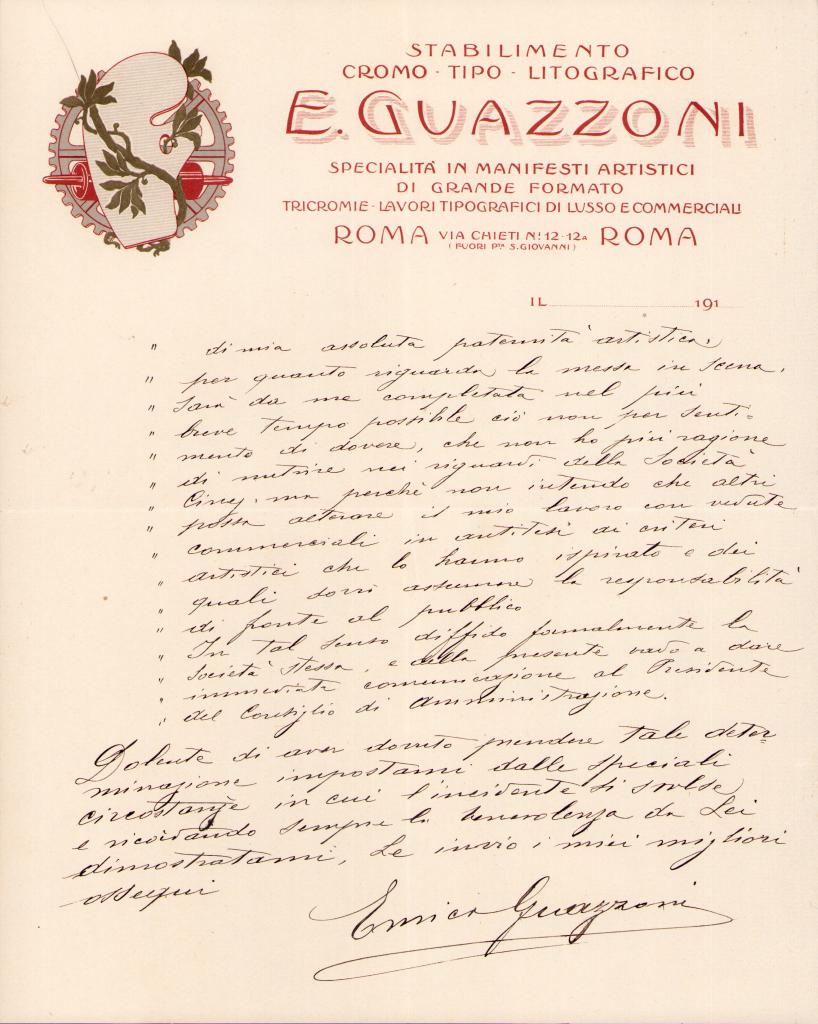 STABILIMENTO
CROMO - TIPO - LITOGRAFICO
E. GUAZZONI
SPECIALITÀ IN MANIFESTI ARTISTICI
DI GRANDE FORMATO
TRICROMIE - LAVORI TIPOGRAFICI DI LUSSO E COMMERCIALI
ROMA VIA CHIETI N.i 12-12A ROMA
(FUORI P.TA S. GIOVANNI)
IL 191
" di mia assoluta paternità artistica,
" per quanto riguarda la messa in scena,
" sarà da me completata nel più
" breve tempo possibile ciò non per senti=
" mento di dovere, che non ho più ragione
" di nutrire nei riguardi della Società
" Cines, ma perchè non intendo che altri
" possa alterare il mio lavoro con vedute
" commerciali in antitesi ai criteri
" artistici che lo hanno ispirato e dei
" quali dovrò assumere la responsabilità
" di fronte al pubblico
" In tal senso diffido formalmente la
" Società stessa, e della presente vado a dare
" immediata comunicazione al Presidente
" del Consiglio di Amministrazione.
Dolente di aver dovuto prendere tale deter=
minazione impostami dalle speciali
circostanze in cui l'incidente si svolse,
e ricordando sempre la benevolenza da Lei
dimostratami, Le invio i miei migliori
ossequi
Enrico Guazzoni